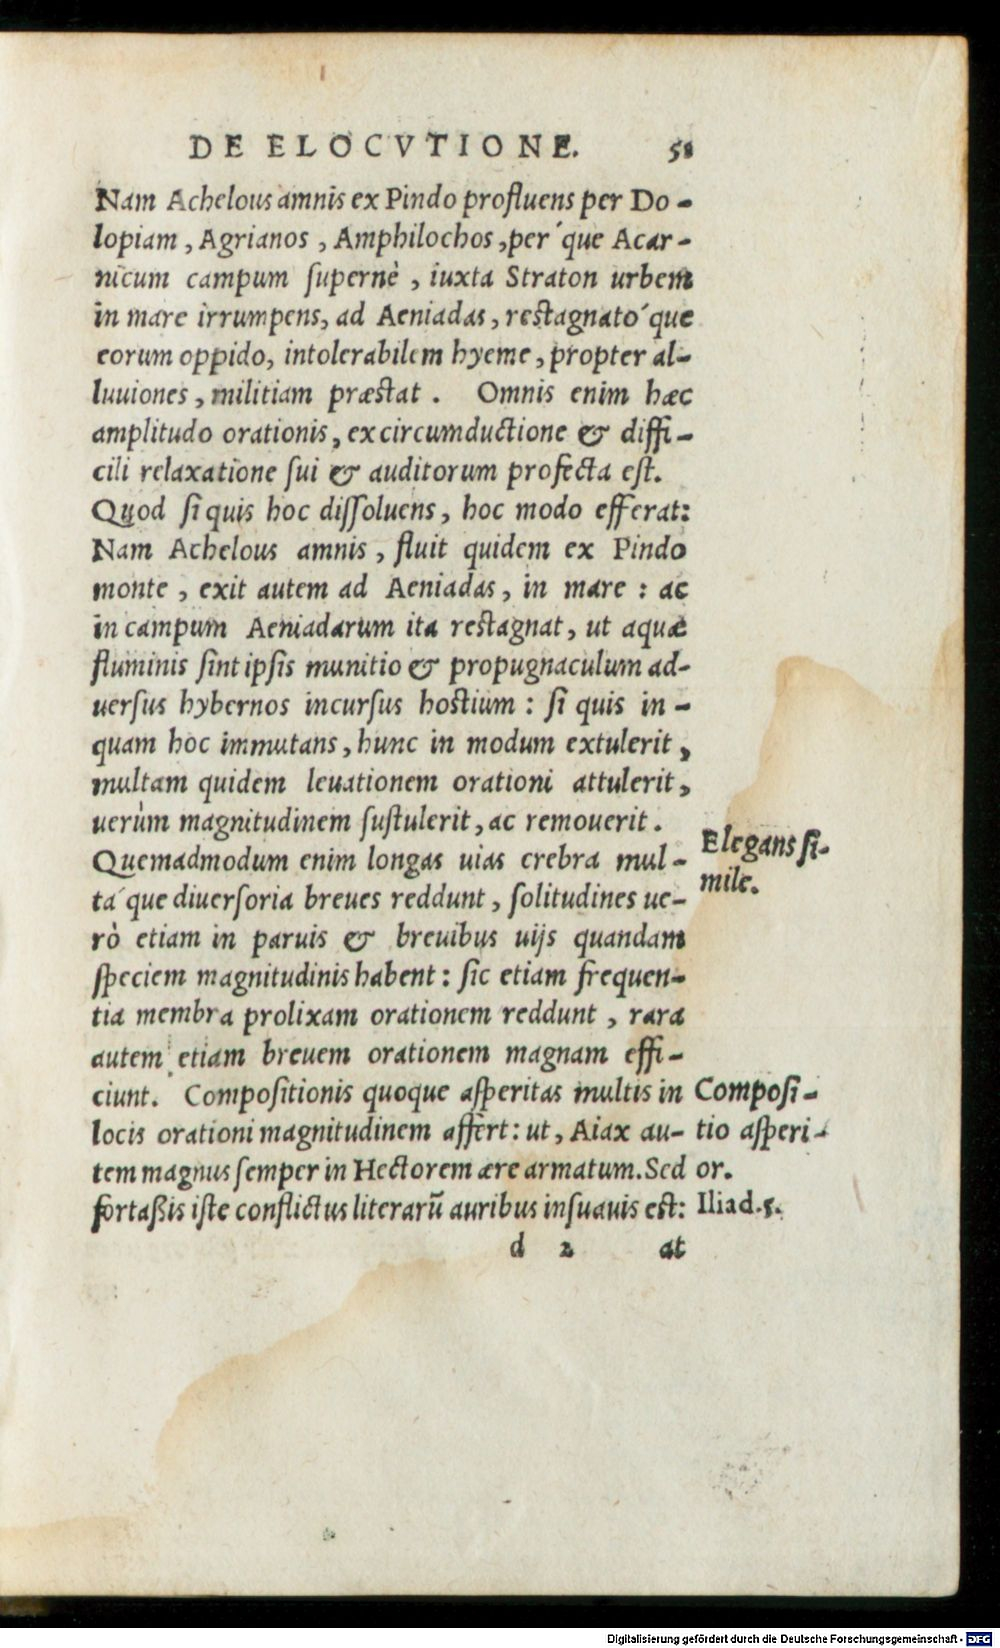 DE ELOCVTIONE. 51
Nam Achelous amnis ex Pindo profluens per Do-
lopiam, Agrianos, Amphilochos, per´que Acar-
nicum campum supernè, iuxta Straton urbem
in mare ìrrumpens, ad Aeniadas, restagnato´que
eorum oppido, intolerabilem hyeme, propter al-
luuiones, militiam præstat. Omnis enim hæc
amplitudo orationis, ex circumductione & diffi-
cili relaxatione sui & auditorum profecta est.
Quod si quis hoc dissoluens, hoc modo efferat:
Nam Achelous amnis, fluit quidem ex Pindo
monte, exit autem ad Aeniadas, in mare: ac
in campum Aeniadarum ita restagnat, ut aquæ
fluminis sint ipsis munitio & propugnaculum ad-
uersus hybernos incursus hostium: si quis in-
quam hoc immutans, hunc in modum extulerit,
multam quidem leuationem orationi attulerit,
uerùm magnitudinem sustulerit, ac remouerit.
Quemadmodum enim longas uias crebra mul-
ta´que diuersoria breues reddunt, solitudines ue-
rò etiam in paruis & breuibus uijs quandam
speciem magnitudinis habent: sic etiam frequen-
tia membra prolixam orationem reddunt, rara
autem etiam breuem orationem magnam effi-
ciunt. Compositionis quoque asperitas multis in
locis orationi magnitudinem affert: ut, Aiax au-
tem magnus semper in Hectorem ære armatum. Sed
fortaßis iste conflictus literarũ auribus insuauis est:
d 2 at
Elegans si-
mile.
Composi-
tio asperi-
or.
Iliad.5.
Digitalisierung gefördert durch die Deutsche Forschungsgemeinschaft - DFG